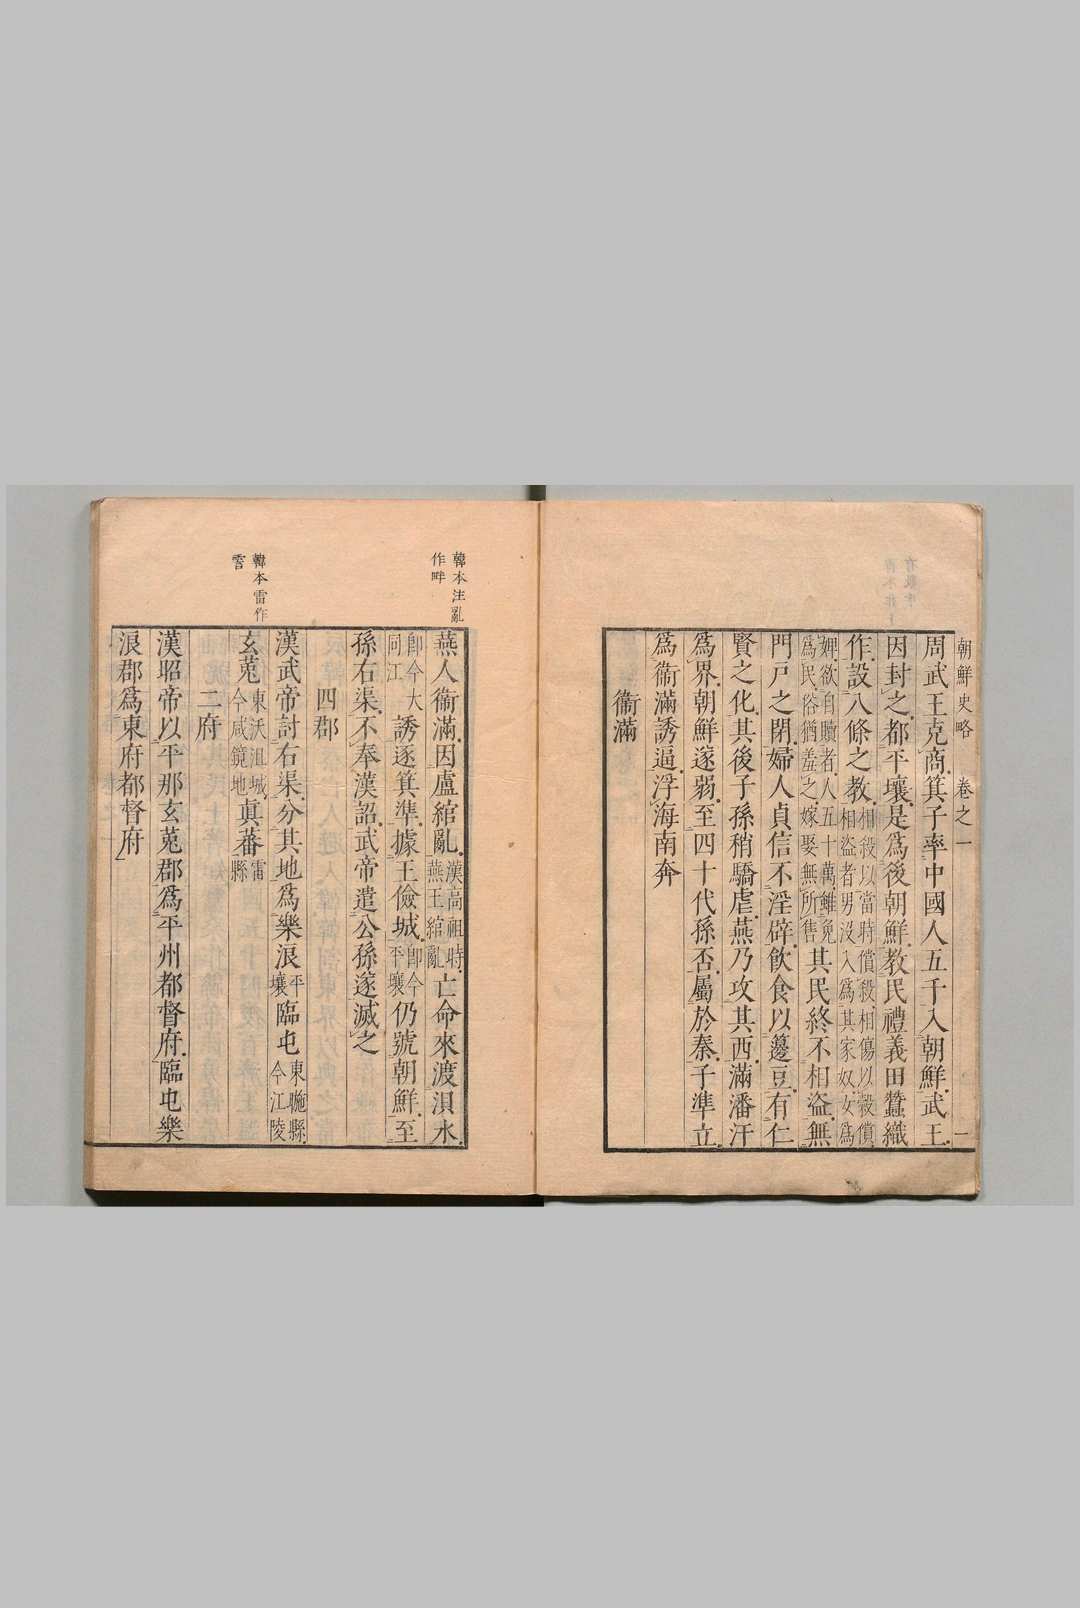 朝鮮史略 卷之一 一
周武王克商箕子率中國人五千入朝鮮武王
因封之都平壤是爲後朝鮮教民禮義田蠶織
作設八條之教相殺以當時償殺相傷以穀償
相盜者男沒入爲其家奴女爲
婢欲自贖者人五十萬雖免
爲民俗猶羞之嫁娶無所售其民終不相盜無
門戸之閉婦人貞信不淫辟飲食以籩豆有仁
賢之化其後子孫稍驕虐燕乃攻其西滿潘汗
爲界朝鮮遂弱至四十代孫否屬於秦子準立
爲衞滿誘逼浮海南奔
衞滿
韓本注亂
作畔
燕人衞滿因盧綰亂漢高祖時
燕王綰亂亡命來渡浿水
卽今大
同江誘逐箕準據王儉城卽今
平壤仍號朝鮮至
孫右渠不奉漢詔武帝遣公孫遂滅之
四郡
韓本雷作
霅
漢武帝討右渠分其地爲樂浪平
壤臨屯東暆縣
今江陵
玄菟東沃沮城
今咸鏡地眞蕃雷
縣
二府
漢昭帝以平那玄菟郡爲平州都督府臨屯樂
浪郡爲東府都督府